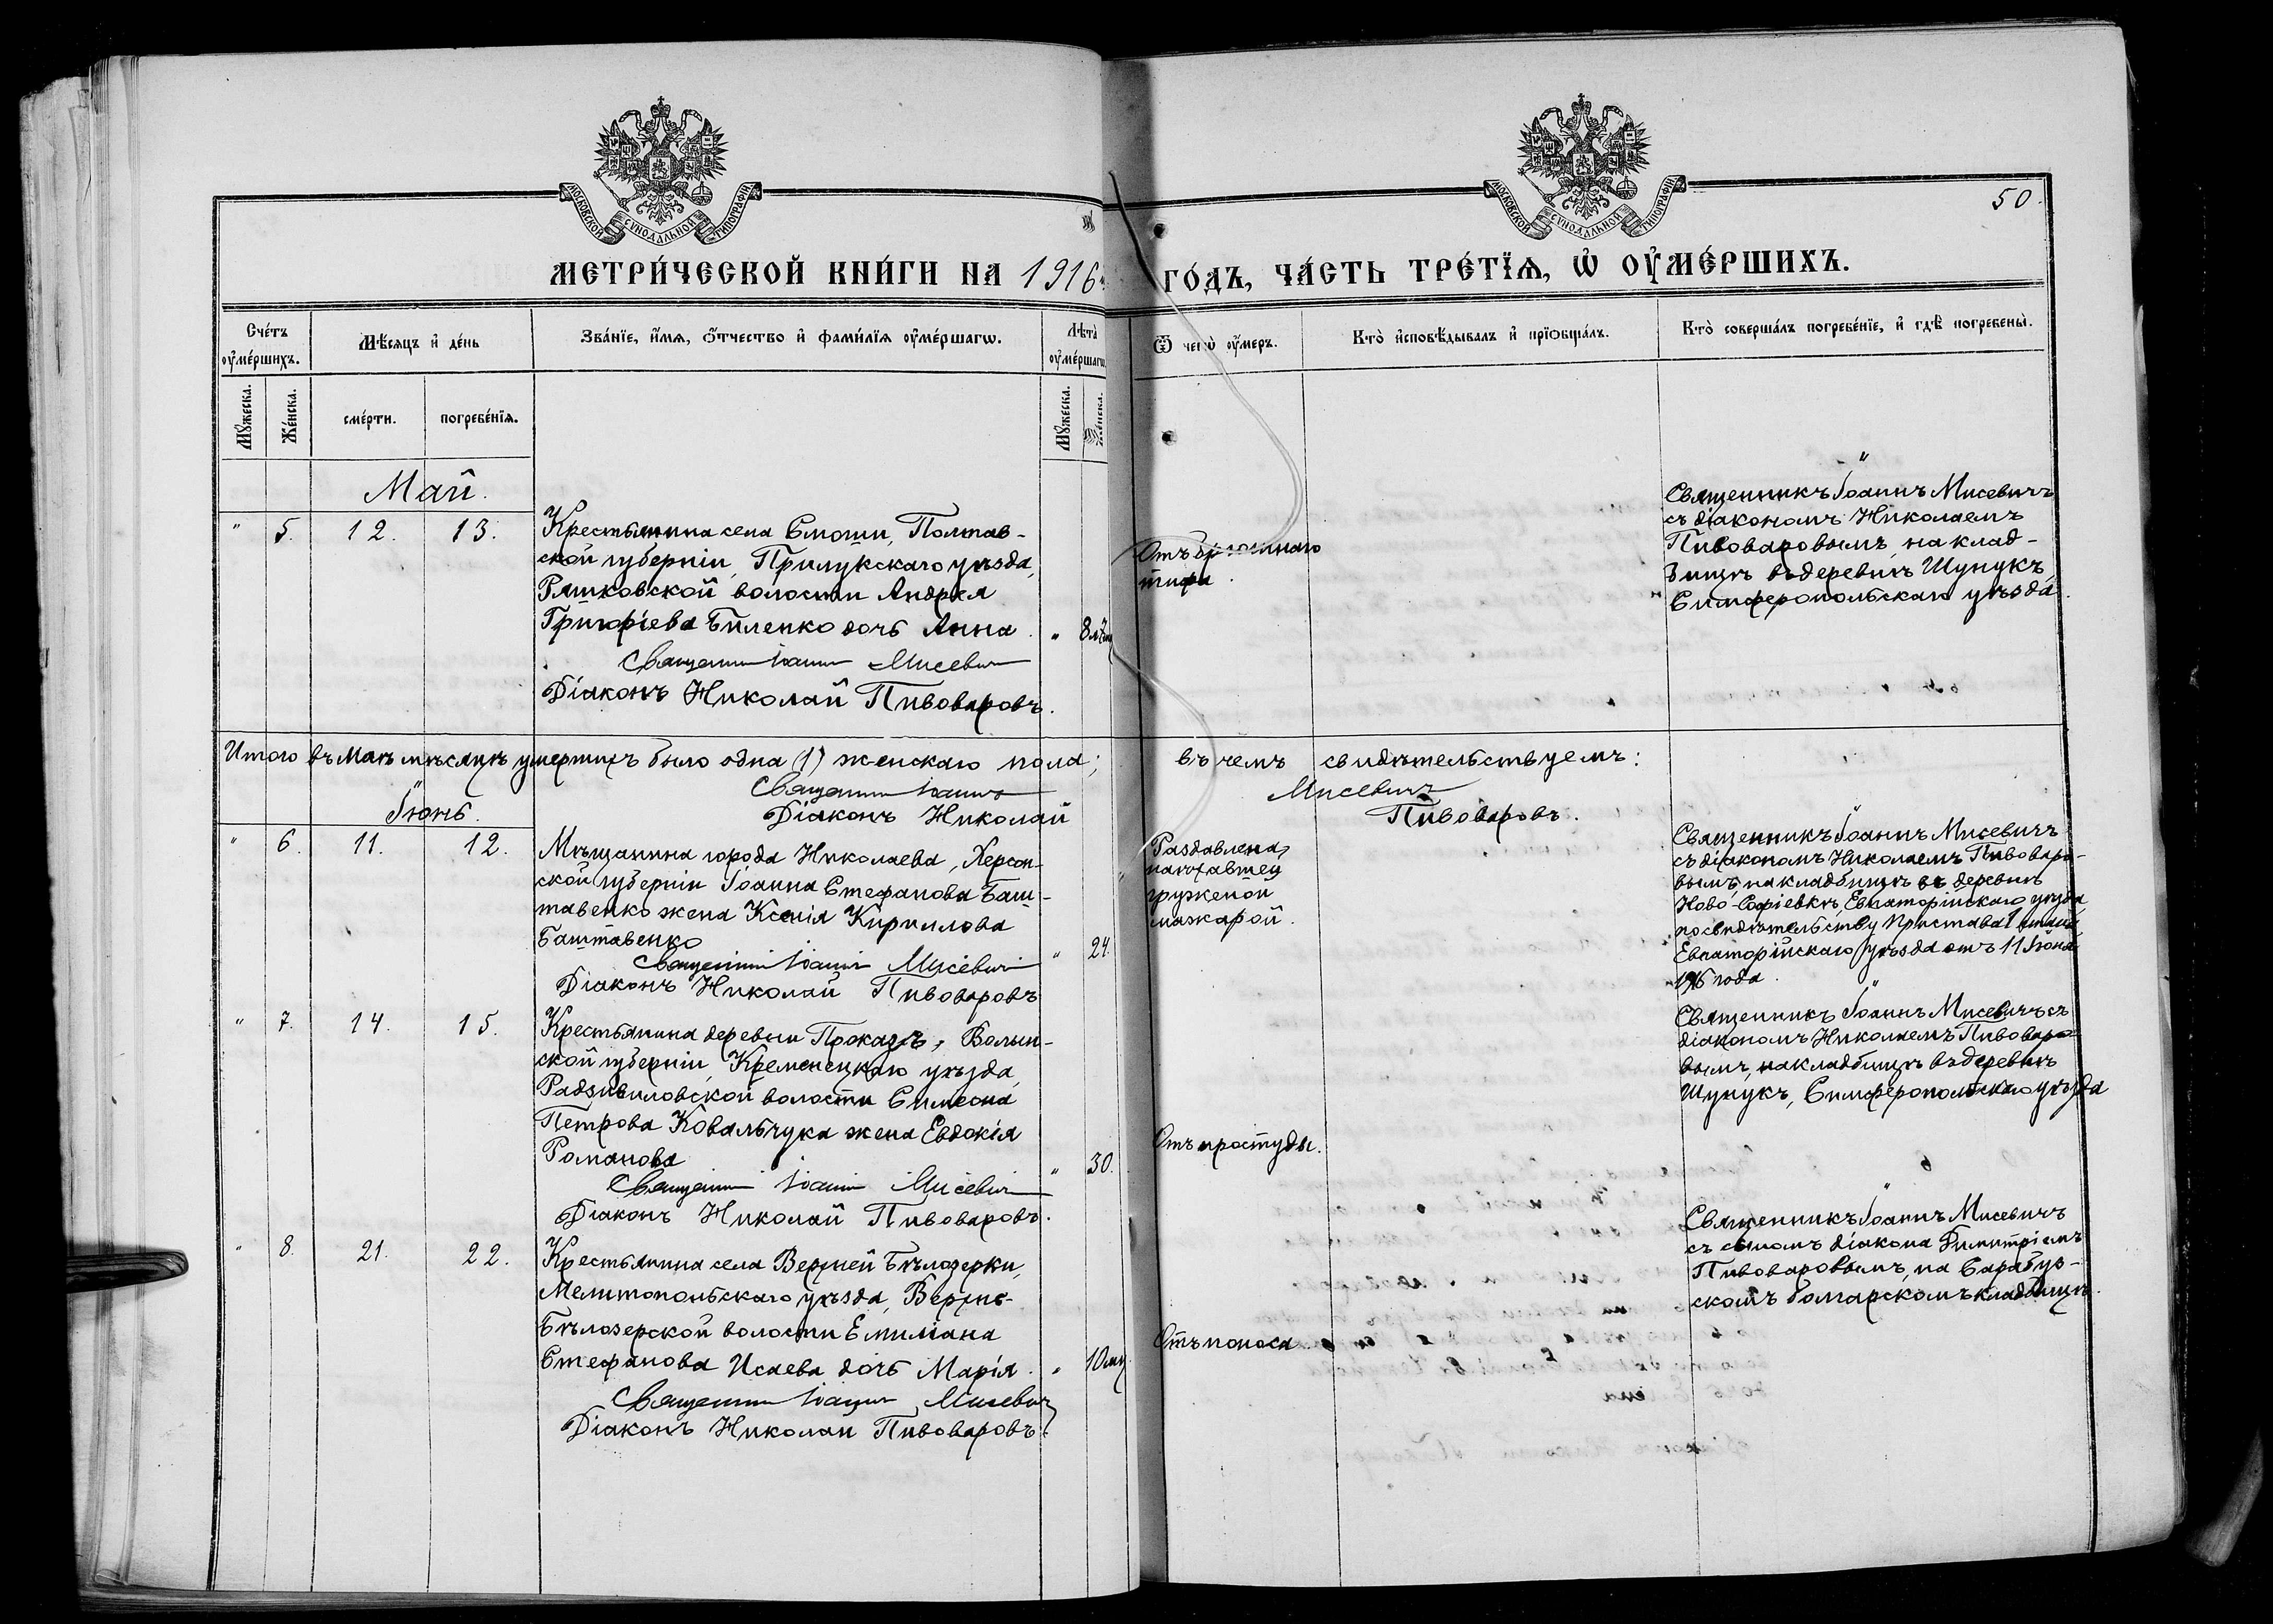 МОСКОВСКОЙ СѴНОДАЛЬНОЙ ТИПОГРАФІИ
МОСКОВСКОЙ СѴНОДАЛЬНОЙ ТИПОГРАФІИ
50.
МЕТРИ́ЧЕСКОЙ КНИ́ГИ НА 1916 ГО́ДЪ, ЧА́СТЬ ТРЕ́ТЇѦ, Ѡ҆ ОУ҆МЕ́РШИХЪ.
Сче́тъ оу҆ме́ршихъ.
Мѣ́сѧцъ и҆ де́нь
Зва́нїе, и҆́мѧ, ѻ҆́тчество и҆ фами́лїѧ оу҆ме́ршагѡ.
Лѣта̀ оу҆ме́ршагѡ.
Ѿ чегѡ̀ оу҆́меръ.
Кто̀ и҆сповѣ́дывалъ и҆ прїѻбща́лъ.
Кто̀ соверша́лъ погребе́нїе, и҆ гдѣ̀ погребены̀.
Мꙋ́жеска.
Же́нска.
сме́рти.
погребе́нїѧ.
Мꙋ́жеска.
Же́нска.
Май.
" 5. 12. 13.
Крестьянина села Смоши, Полтав-
ской губерніи, Прилукскаго уѣзда,
Ряшковской волости Андрея
Григоріева Биленко дочь Анна
" 8 л 7 мц
Священникъ Іоаннъ Мисевичъ
Діаконъ Николай Пивоваровъ.
Отъ брюшнаго
тифа.
Священникъ Іоаннъ Мисевичъ
съ діакономъ Николаемъ
Пивоваровымъ, на клад-
бищѣ въ деревнѣ Шунукъ,
Симферопольскаго уѣзда.
Итого въ Маѣ мѣсяцѣ умершихъ было одна (1) женскаго пола; въ чемъ свидѣтельствуемъ:
Священникъ Іоаннъ Мисевичъ
Діаконъ Николай Пивоваровъ.
Іюнь.
" 6. 11. 12.
Мѣщанина города Николаева, Херсон-
ской губерніи Іоанна Стефанова Баш-
тавенко жена Ксенія Кириллова
Баштавенко
" 24.
Священникъ Іоаннъ Мисевичъ
Діаконъ Николай Пивоваровъ
Раздавлена
груженой
мажарой.
Священникъ Іоаннъ Мисевичъ
съ діакономъ Николаемъ Пивоваро-
вымъ, на кладбищѣ въ деревнѣ
Ново-Софіевкѣ, Евпаторійскаго уѣзда,
по свидѣтельству Пристава 1 стана
Евпаторійскаго уѣзда отъ 11 Іюня
1916 года.
" 7. 14. 15.
Крестьянина деревни Проказъ, Волын-
ской губерніи, Кременецкаго уѣзда,
Радзивиловской волости Симеона
Петрова Ковальчука жена Евдокія
Романова
" 30.
Священникъ Іоаннъ Мисевичъ
Діаконъ Николай Пивоваровъ.
Отъ простуды.
Священникъ Іоаннъ Мисевичъ съ
діакономъ Николаемъ Пивоваро-
вымъ, на кладбищѣ въ деревнѣ
Шунукъ, Симферопольскаго уѣзда
" 8. 21. 22.
Крестьянина села Верхней Бѣлозерки,
Мелитопольскаго уѣзда, Верхне-
Бѣлозерской волости Емиліана
Стефанова Исаева дочь Марія.
" 10 мц
Священникъ Іоаннъ Мисевичъ
Діаконъ Николай Пивоваровъ.
Отъ поноса.
Священникъ Іоаннъ Мисевичъ
съ сыномъ діакона Димитріемъ
Пивоваровымъ, на Сарабуз-
скомъ болгарскомъ кладбищѣ.